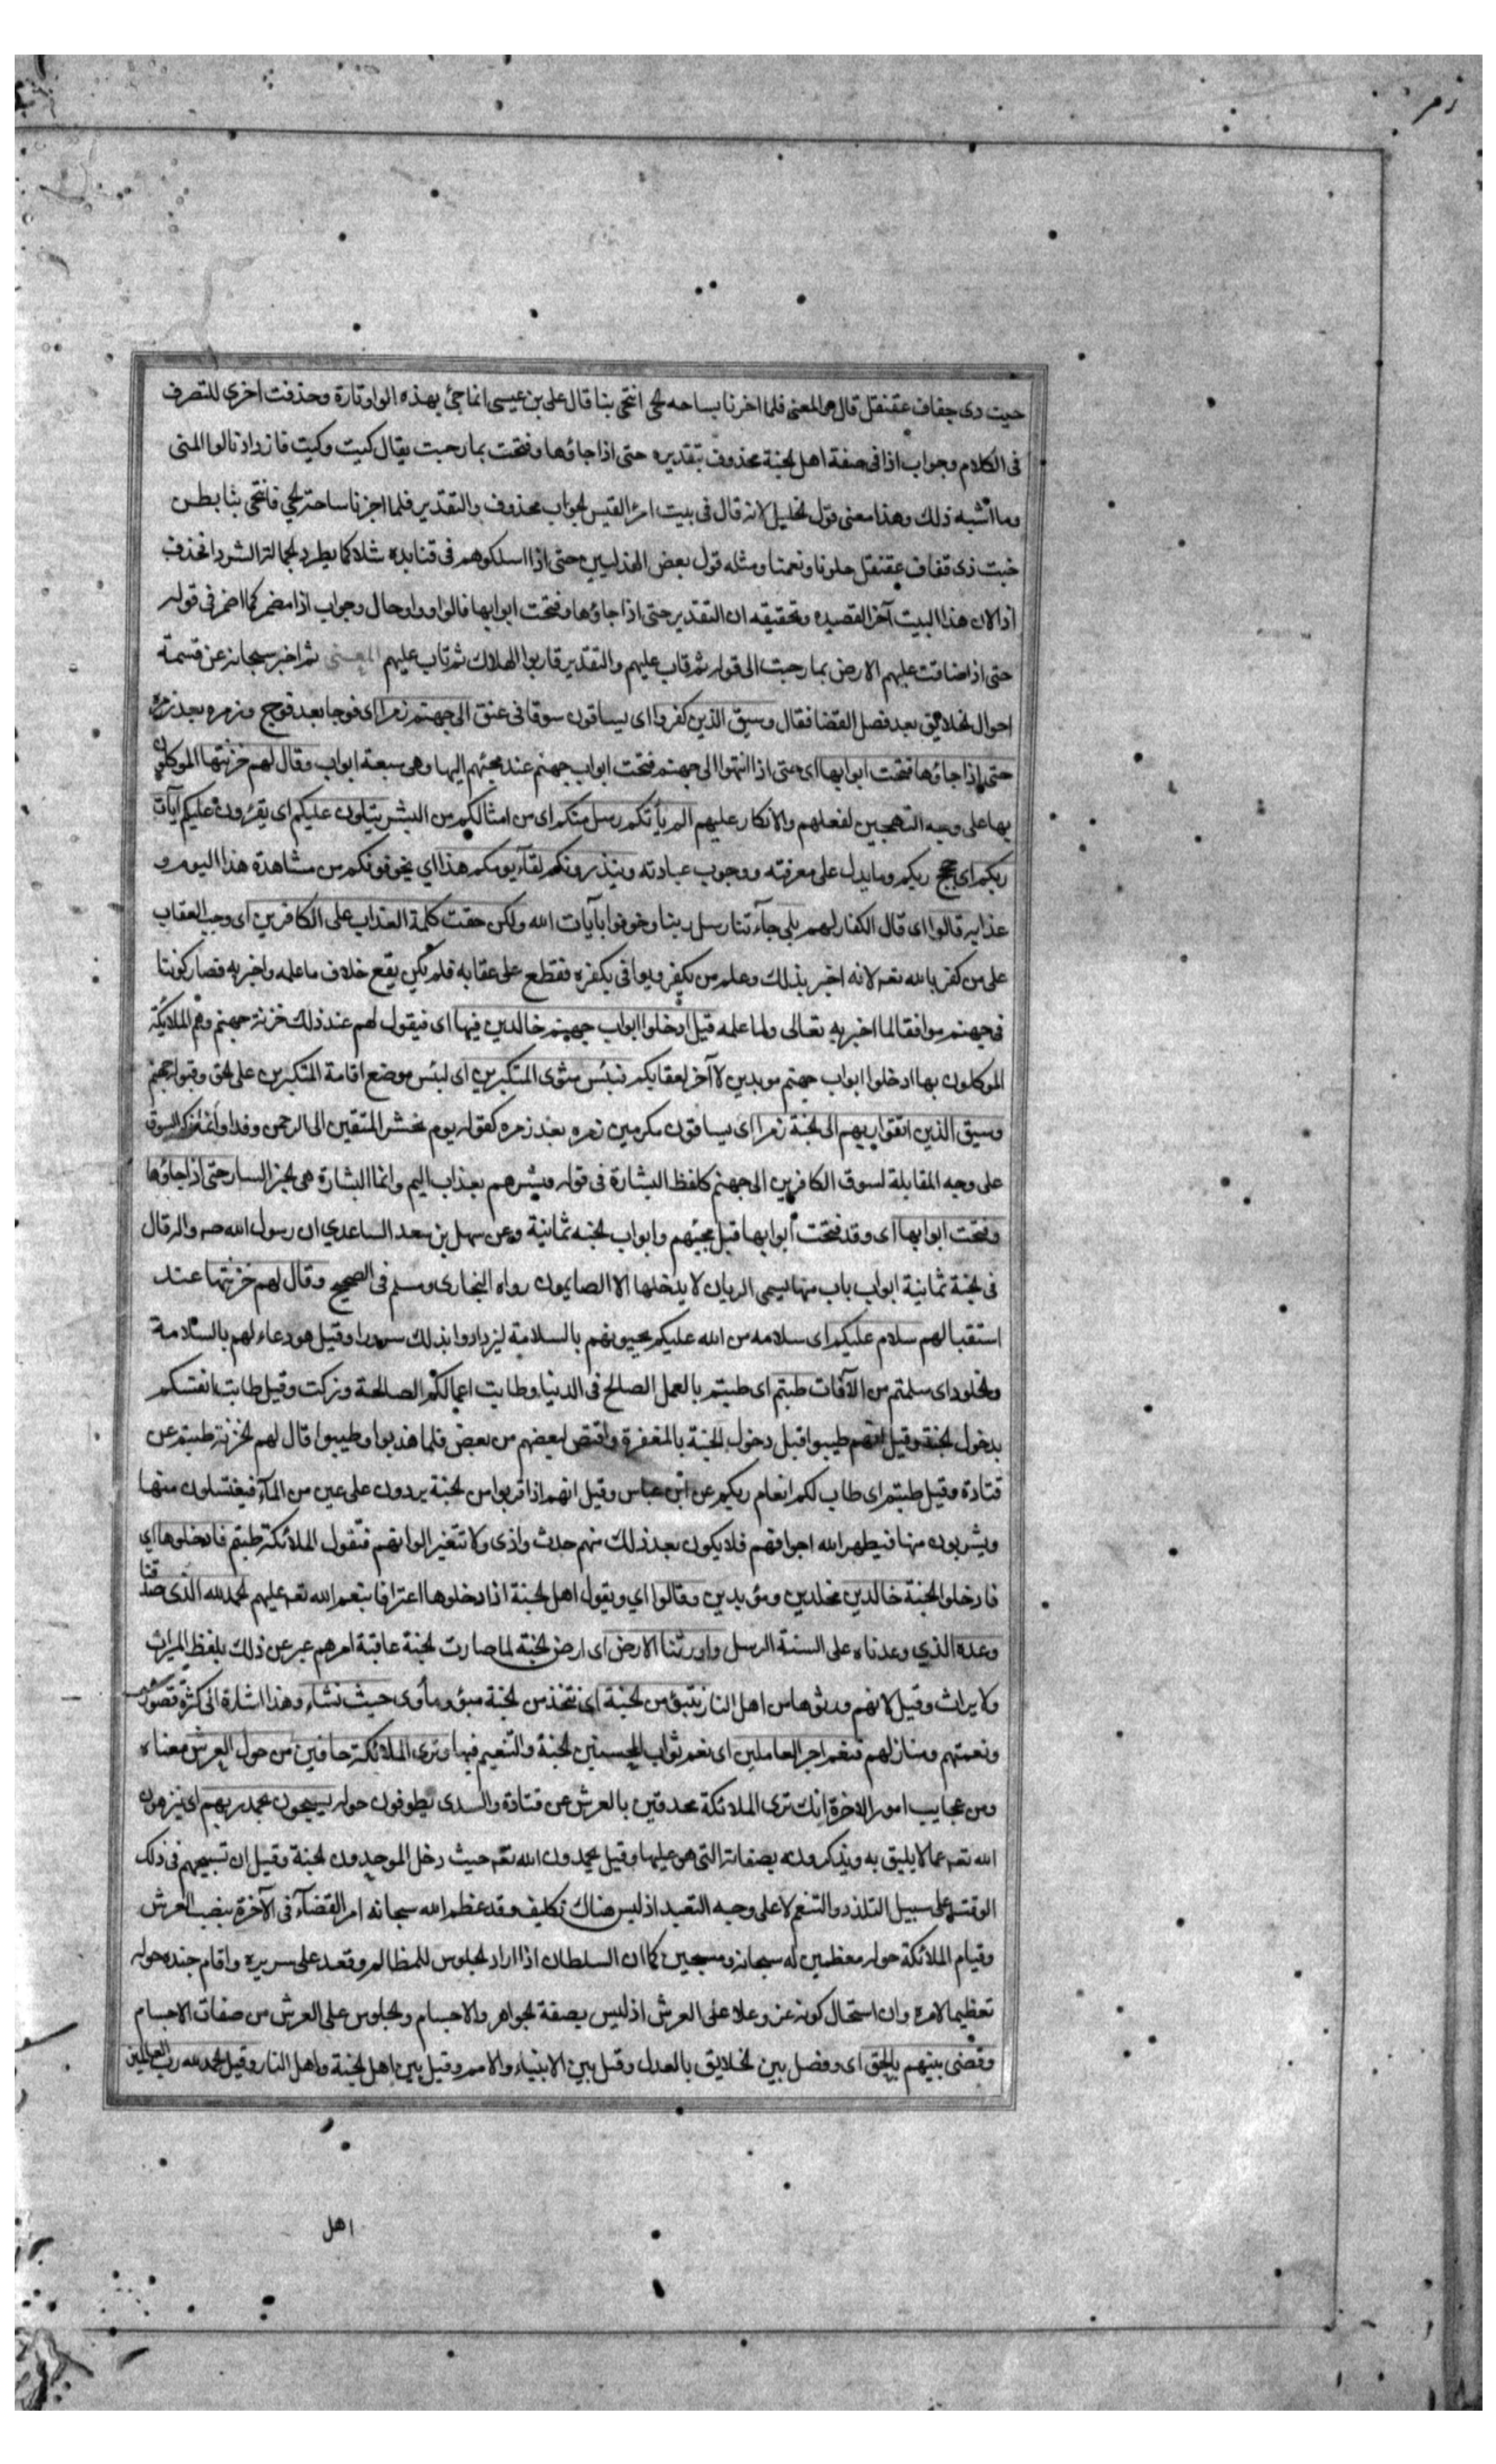 زمر
حيت ذى جفاف عقنقل قال هو المعنى فلما اخرنا بساحه لحى انتحى بنا قال على بن عيسى انما جئ بهذه الواو تارة وحذفت اخرى للتصرف
فى الكلام وجواب اذا فى صفة اهل لجنة محذوف تقديره حتى اذا جاؤها وفتحت بما رحبت يقال كيت وكيت فازداد نالوا المنى
وما اشبه ذلك وهذا معنى قول لخليل لانه قال فى بيت امرٔ القيس لجواب محذوف والتقدير فلما اجزنا ساحة لحي فانتحى بنا بطن
خبت ذى قفاف عقنقل خلونا ونعمنا ومثله قول بعض الهذليين حتى اذا اسلكوهم فى قنايده شلا كما يطرد لجمالة الشردا فحذف
اذ الان هذا البيت آخر القصيده وتحقيقه ان التقدير حتى اذا جاؤها وفتحت ابوابها فالواو واو حال وجواب اذا مضمر كما اضمر فى قوله
حتى اذا ضاقت عليهم الارض بما رحبت الى قوله ثم تاب عليهم والتقدير قاربوا الهلاك ثم تاب عليهم المعنى ثم اخبر سبحانه عن قسمة
احوال لخلايق بعد فصل القضا فقال وسيق الذين كفروا اى يساقون سوقا فى عنق الى جهنم زمرا اى فوجا بعد فوج وزمره بعد زمره
حتى اذا جاؤها فتحت ابوابها اى حتى اذا انتهوا الى جهنم فتحت ابواب جهنم عند مجئهم اليها وهى سبعة ابواب وقال لهم خزنتها الموكلون
بها على وجه التهجين لفعلهم والانكار عليهم الم يأتكم رسل منكم اى من امثالكم من البشر يتلون عليكم اى يقرؤن عليكم آيات
ربكم اى حجج ربكم وما يدل على معرفته ووجوب عبادته وينذرونكم لقآء يومكم هذا اي يخوفونكم من مشاهدة هذا اليوم و
عذابه قالوا اى قال الكفار لهم بلى جآء تنا رسل ربنا وخوفوا بآيات الله ولكن حقت كلمة العذاب على الكافرين اى وجب العقاب
على من كفر بالله تعه لانه اخبر بذلك وعلم من يكفر ويوافى بكفره فقطع على عقابه فلم يكن يقع خلاف ما علمه واخبر به فصار كوننا
فى جهنم موافقا لما اخبر به تعالى ولما علمه قيل ادخلوا ابواب جهنم خالدين فيها اى فيقول لهم عند ذلك خزنة جهنم وهم الملايكة
الموكلون بها ادخلوا ابواب جهنم موبدين لا آخر لعقابكم فبئس مثوى المتكبرين اى لبئس موضع اقامة المتكبرين على لحق وقبوله جهنم
وسيق الذين اتقوا ربهم الى لجنة زمرا اى يساقون مكرمين زمره بعد زمره كقوله يوم نحشر المتقين الى الرحمن وفدا وانما ذكر السوق
على وجه المقابلة لسوق الكافرين الى جهنم كلفظ البشارة فى قوله فبشرهم بعذاب اليم وانما البشارة هى لخبر السار حتى اذا جاؤها
وفتحت ابوابها اى وقد فتحت ابوابها قبل مجيئهم وابواب لجنه ثمانية وعن سهل بن سعد الساعدي ان رسول الله صه واله قال
فى لجنة ثمانية ابواب باب منها يسمى الريان لا يدخلها الا الصايمون رواه البخارى ومسلم فى الصحيح وقال لهم خزنتها عند
استقبالهم سلام عليكم اى سلامه من الله عليكم يحيونهم بالسلامة ليزدادوا بذلك سرورا وقيل هو دعاء لهم بالسلامة
ولخلود اى سلمتم من الآفات طبتم اى طبتم بالعمل الصالح فى الدنيا وطابت اعمالكم الصالحة وزكت وقيل طابت انفسكم
بدخول لجنة وقيل انهم طيبوا قبل دخول الجنة بالمغفرة واقتص لبعضهم من بعض فلما هذبوا وطيبوا قال لهم لخزنة طبتم عن
قتادة وقيل طبتم اى طاب لكم انعام ربكم عن ابن عباس وقيل انهم اذا قربوا من لجنة يردون على عين من المآء فيغتسلون منها
ويشربون منها فيطهر الله اجوافهم فلا يكون بعد ذلك منهم حدث واذى ولا تتغير الوانهم فتقول الملائكة طبتم فادخلوها اي
فادخلوا الجنة خالدين مخلدين ومؤبدين وقالوا اي ويقول اهل لجنة اذا دخلوها اعترافا بنعم الله تعه عليهم لحمد لله الذى صدقنا
وعده الذي وعدناه على السنة الرسل واورثنا الارض اى ارض لجنة لما صارت لجنة عاقبة امرهم عبر عن ذلك بلفظ الميراث
ولا يراث وقيل لانهم ورثوها من اهل النار نتبؤ من لجنة اى نتخذ من لجنة مبؤ ومأوى حيث نشاء وهذا اشارة الى كثرة قصورهم
ونعمتهم ومنازلهم فنعم اجر العاملين اى نعم ثواب المحسنين لجنة والنعيم فيها وترى الملائكة حافين من حول العرش معناه
ومن عجايب امور الاخرة انك ترى الملائكة محدقين بالعرش عن قتادة والسدى يطوفون حوله يسبحون بحمد ربهم اى ينزهون
الله تعه عما لا يليق به ويذكرونه بصفاته التى هو عليها وقيل يحمدون الله تعه حيث دخل الموحدون لجنة وقيل ان تسبيحهم فى ذلك
الوقت على سبيل التلذذ والتنعم لا على وجه التعبد اذ ليس هناك تكليف وقد عظم الله سبحانه امر القضآء فى الآخرة بنصب العرش
وقيام الملائكة حوله معظمين له سبحانه ومسبحين كما ان السلطان اذا اراد لجلوس للمظالم وقعد على سريره واقام جنده حوله
تعظيما لامره وان استحال كونه عز وعلا على العرش اذ ليس بصفة لجواهر والاجسام ولجلوس على العرش من صفات الاجسام
وقضى بينهم بالحق اى وفصل بين لخلايق بالعدل وقيل بين الانبياء والامم وقيل بين اهل لجنة واهل النار وقيل لحمد لله رب العالمين
اهل